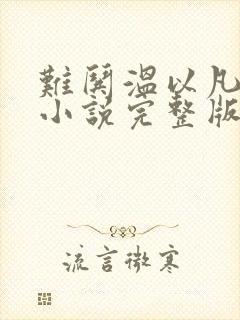 難鬨溫以凡
小說完整版
流言微寒